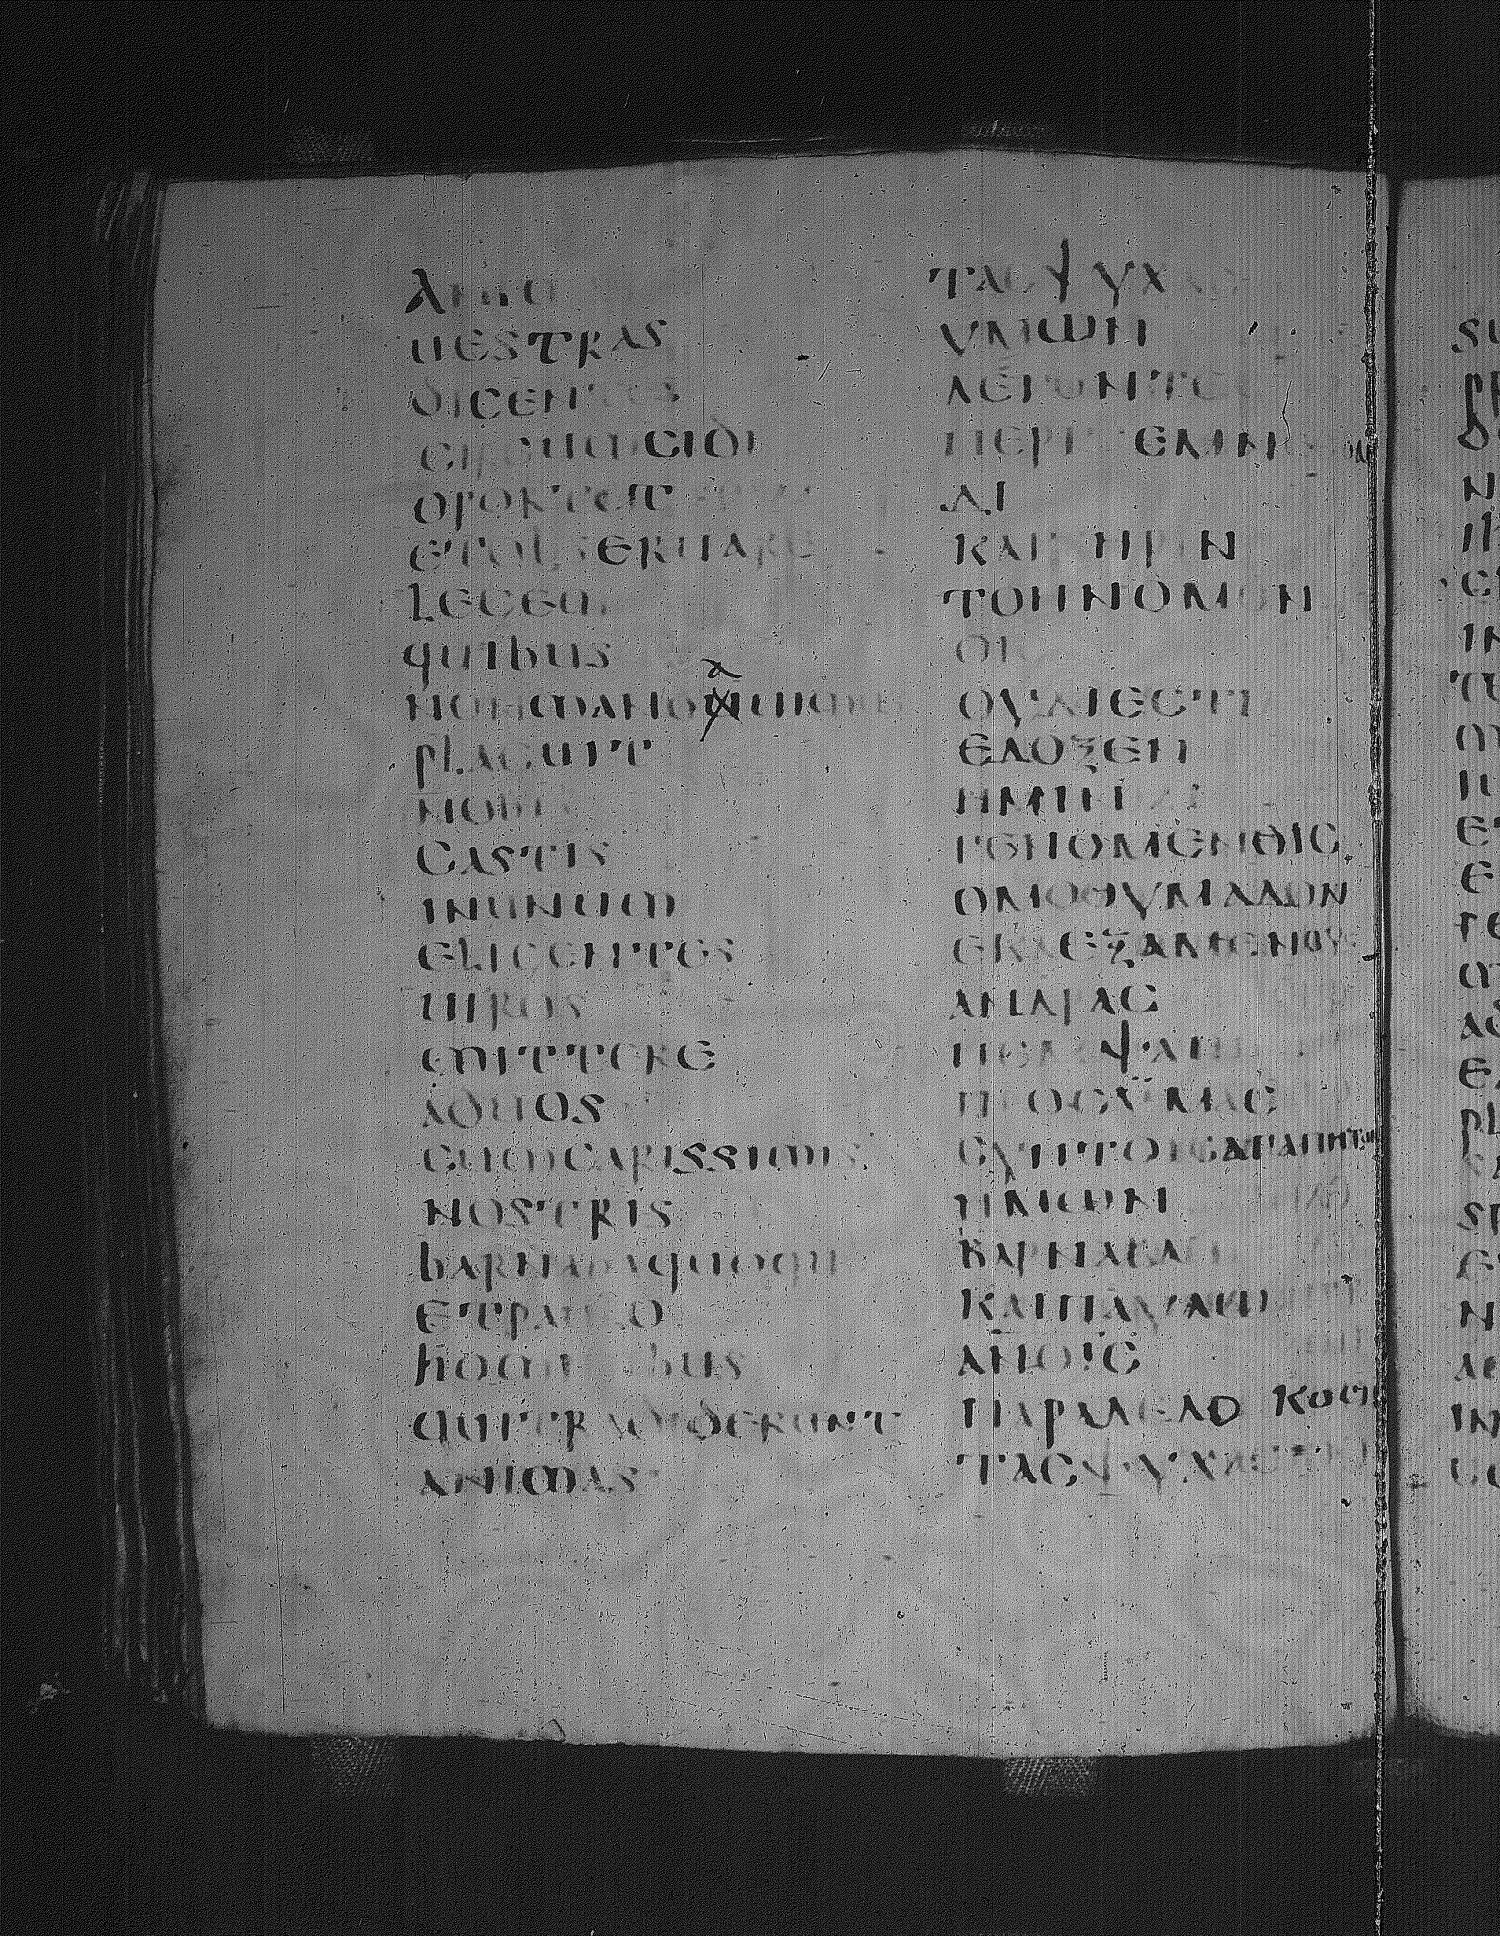 ANIMAS
UESTRAS
DICENTES
CIRCUMCIDI
OPORTET
ETOBSERUARE
LEGEM
QUIBUS
PLACUIT
NOBIS
CASTIS
INUNUM
ELIGENTES
UIROS
MITTERE
ADUOS
CUMCARISSIMIS
NOSTRIS
BARNABAQUOQU
ETPAULO
HOMINIBUS
QUITRADIDERUNT
ANIMAS
ΤΑϹΨΥΧΑϹ
ΥΜΩΝ
ΛΕΓΟΝΤΕϹ
ΔΙ
ΚΑΙΤΗΡΙΝ
ΤΟΝΝΟΜΟΝ
ΟΙϹ
ΟΥΔΙΕϹΤΙ
ΕΔΟΞΕΝ
ΗΜΙΝ
ΓΕΝΟΜΕΝΟΙϹ
ΟΜΟΘΥΜΑΔΟΝ
ΕΚΛΕΞΑΜΕΝΟΥϹ
ΑΝΔΡΑϹ
ΠΕΜΨΑΙ
ΠΡΟϹΥΜΑϹ
ϹΥΝΤΟΙϹΑΓΑΠΗΤΟΙϹ
ΗΜΩΝ
ΒΑΡΝΑΒΑ
ΚΑΙΠΑΥΛΩ
ΑΝΟΙϹ
ΠΑΡΑΔΕΔΩΚΟϹΙ
ΤΑϹΨΥΧΑϹ